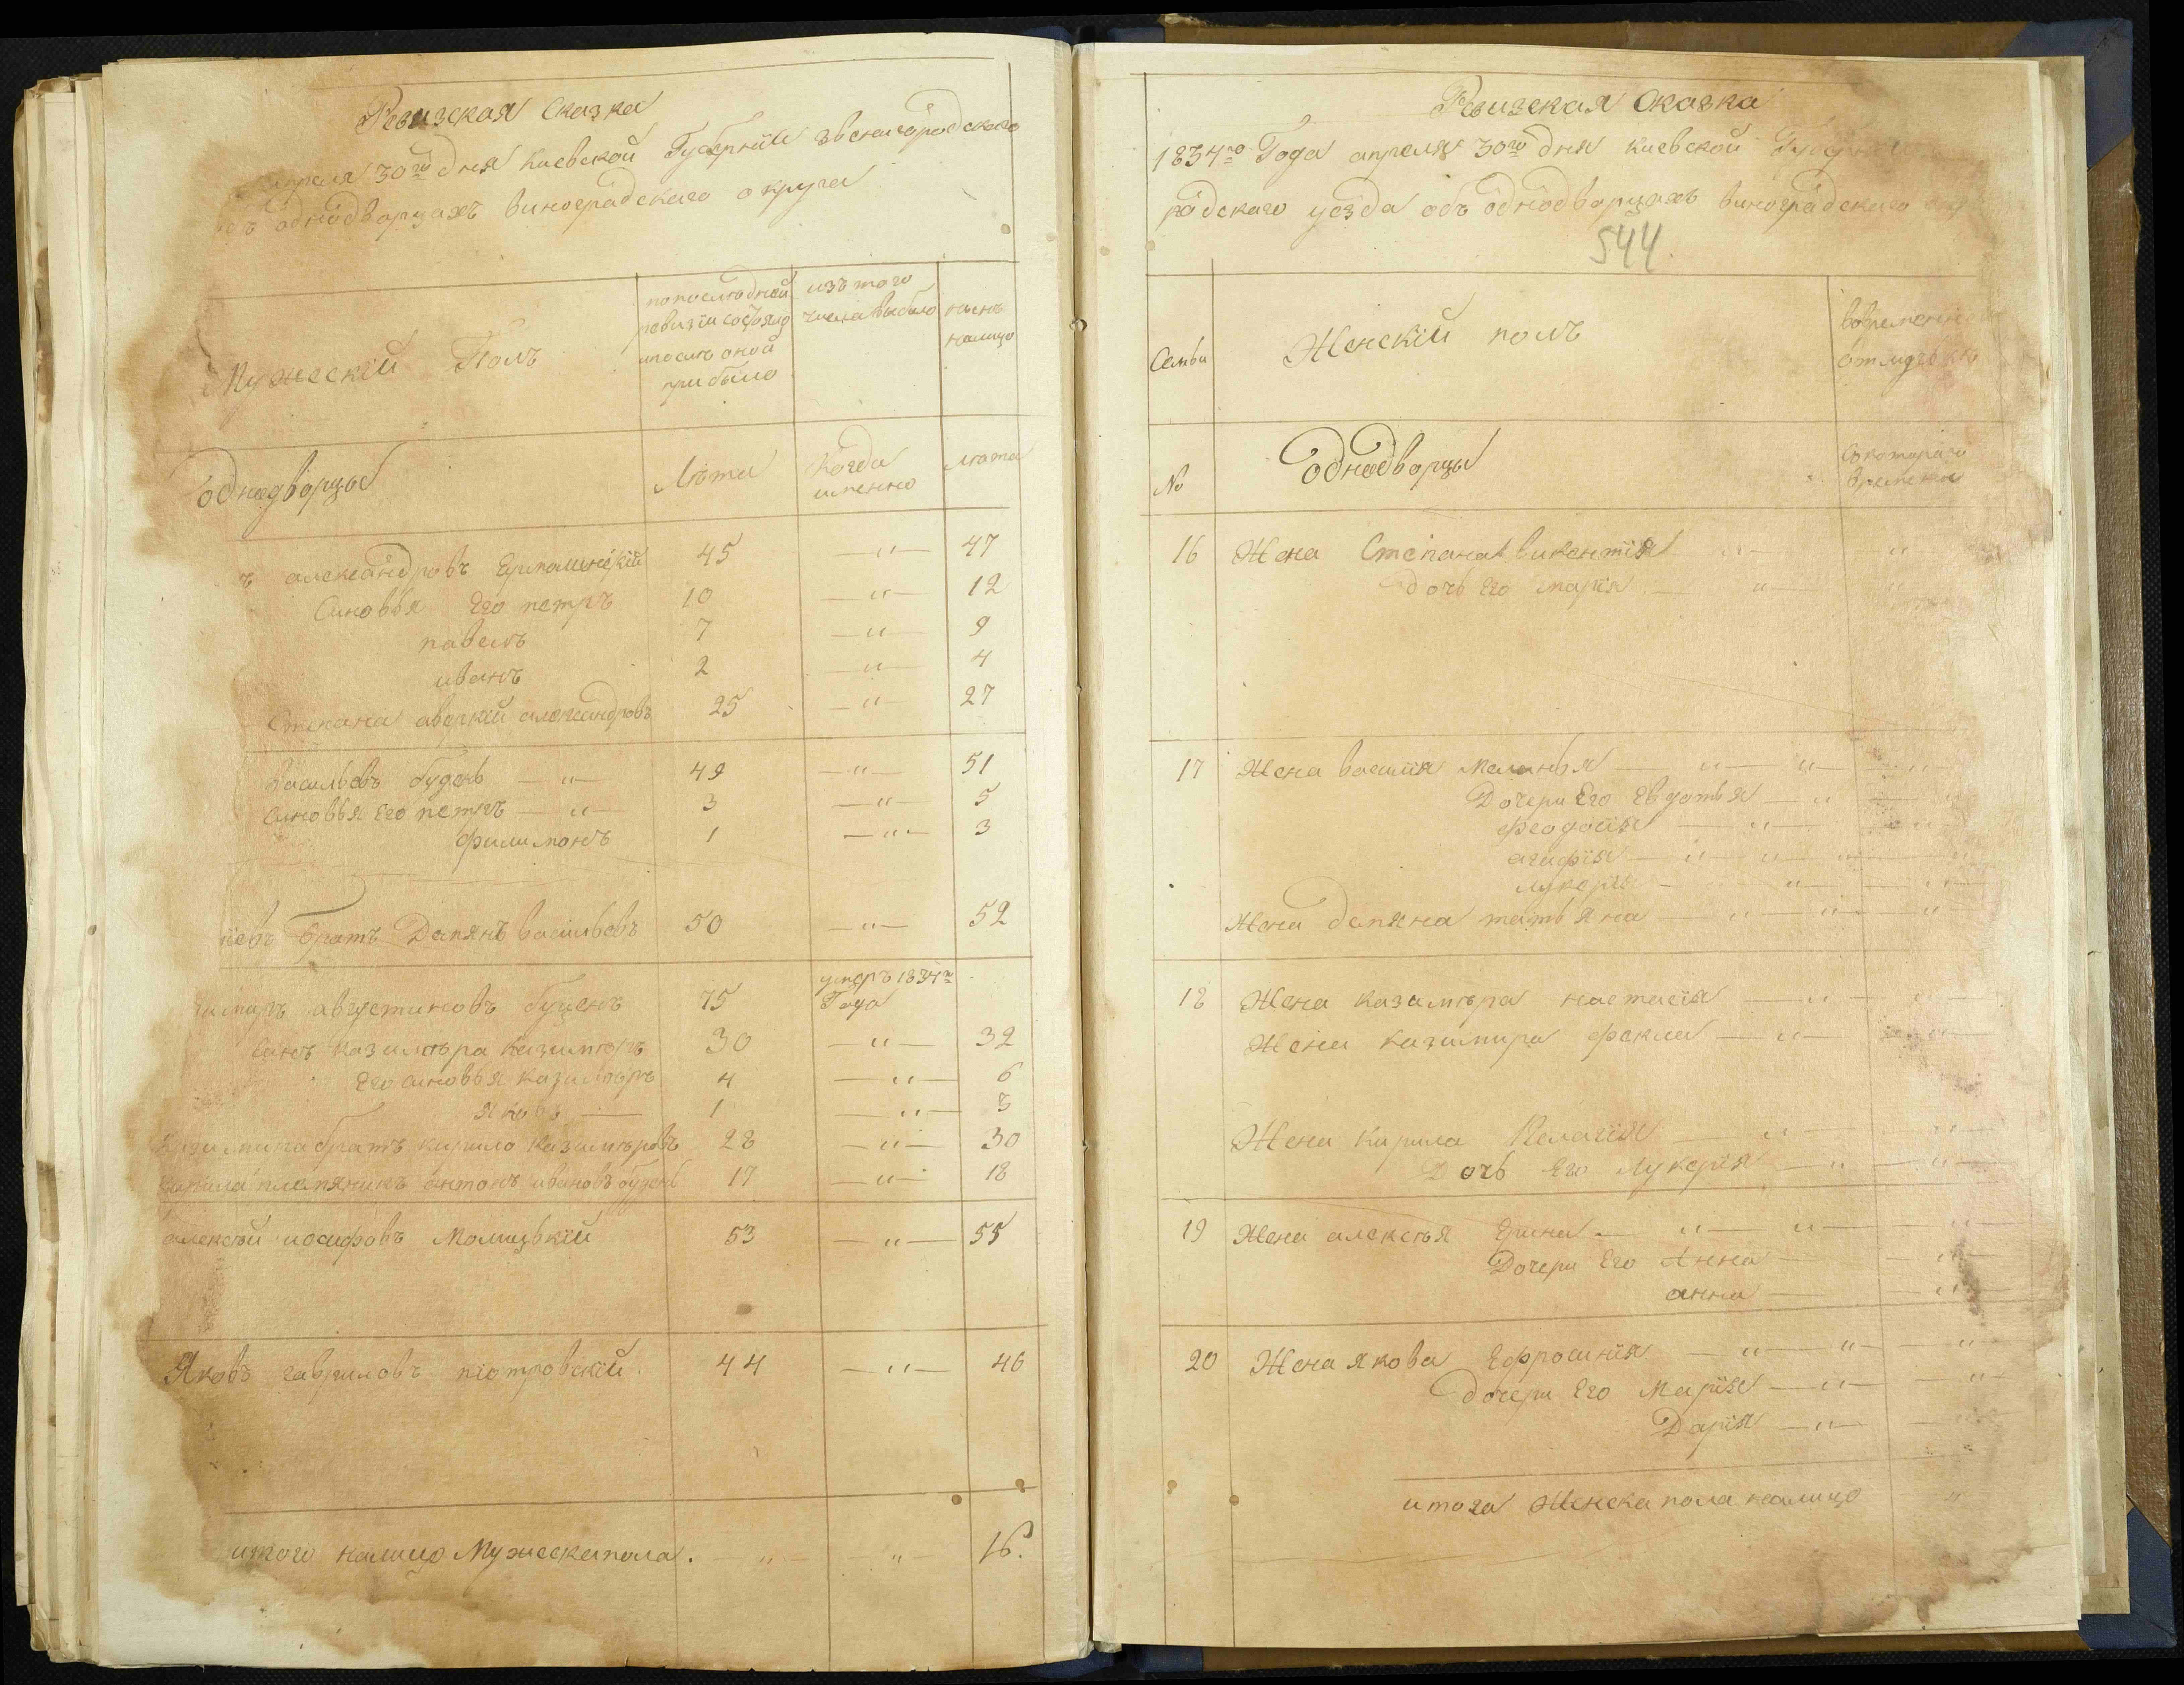 Ревизская Сказка
апреля 30го дня Киевской Губернїи Звенигородского
объ однодворцахъ виноградскаго округа
Мужескїй Полъ
по последней ревизїи состояло и после оной прибыло
изъ того числа выбыло
ныне налицо
однодворцы
Лѣта
Когда именно
лѣта
ъ александровъ 45 —„— 47
Синовья Его петръ 10 —„— 12
павелъ 7 —„— 9
иванъ 2 —„— 4
Степана аверкїй александровъ 25 —„— 27
Васильевъ буденъ —„— 49 —„— 51
синовья Его петръ —„— 3 —„— 5
филимонъ 1 —„— 3
братъ Демянъ васильевъ 50 —„— 52
августиновъ буценъ 75 умеръ 1834го Года
синъ казимѣра казимѣръ 30 —„— 32
Его синовья казимѣръ 4 —„— 6
яковъ — 1 —„— 3
братъ кирило казимѣровъ 28 —„— 30
кирила племяникъ антонъ ивановъ буценъ 17 —„— 18
алексѣй иосифовъ Молицькїй 53 —„— 55
Яковъ гавриловъ пїотровскїй 44 —„— 46
итого налицо Мужеска пола. —„— —„— 16.
Ревизская Сказка
1834го Года апреля 30го дня киевской Губернїи
родскаго уезда объ однодворцахъ виноградскаго
544.
Семьи
Женскїй полъ
во временной отлучкѣ
№
однодворцы
Съ котораго времени
16 Жена Степана викентїя —„— „
дочь Его марїя —„— „
17 Жена василїя Меланья —„— „— „
Дочери Его Евдотья —„— „
феодосїя —„— „
агафїя —„— „— „
лукерїя —„— „
Жена демяна татьяна —„— „— „
18 Жена казимѣра настасїя —„— „
Жена казимира фекла —„— „
Жена Кирила Пелагїя „— „
Дочь Его Лукерїя —„— „
19 Жена алексѣя Ерина —„— „— „
Дочери Его Анна — „
анна — „
20 Жена якова Ефросинїя —„— „— „
дочери Его Марїя —„— „
Дарїя —„— „
итого Женска пола налицо „